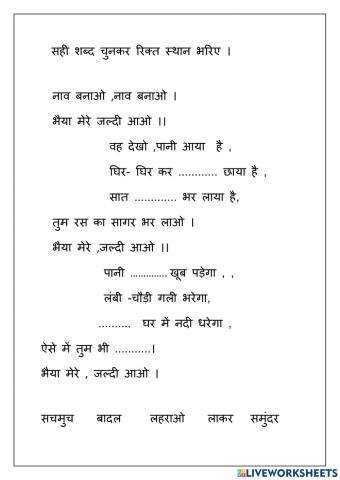 सही शब्द चुनकर रिक्त स्थान भरिए ।
नाव बनाओ ,नाव बनाओ ।
भैया मेरे जल्दी आओ ।।
वह देखो ,पानी आया है ,
घिर- घिर कर ............ छाया है ,
सात ............. भर लाया है,
तुम रस का सागर भर लाओ ।
भैया मेरे ,जल्दी आओ ।।
पानी .............. खूब पड़ेगा , ,
लंबी -चौड़ी गली भरेगा,
.......... घर में नदी धरेगा ,
ऐसे में तुम भी ...........।
भैया मेरे , जल्दी आओ ।
सचमुच बादल लहराओ लाकर समुंदर
LIVEWORKSHEETS